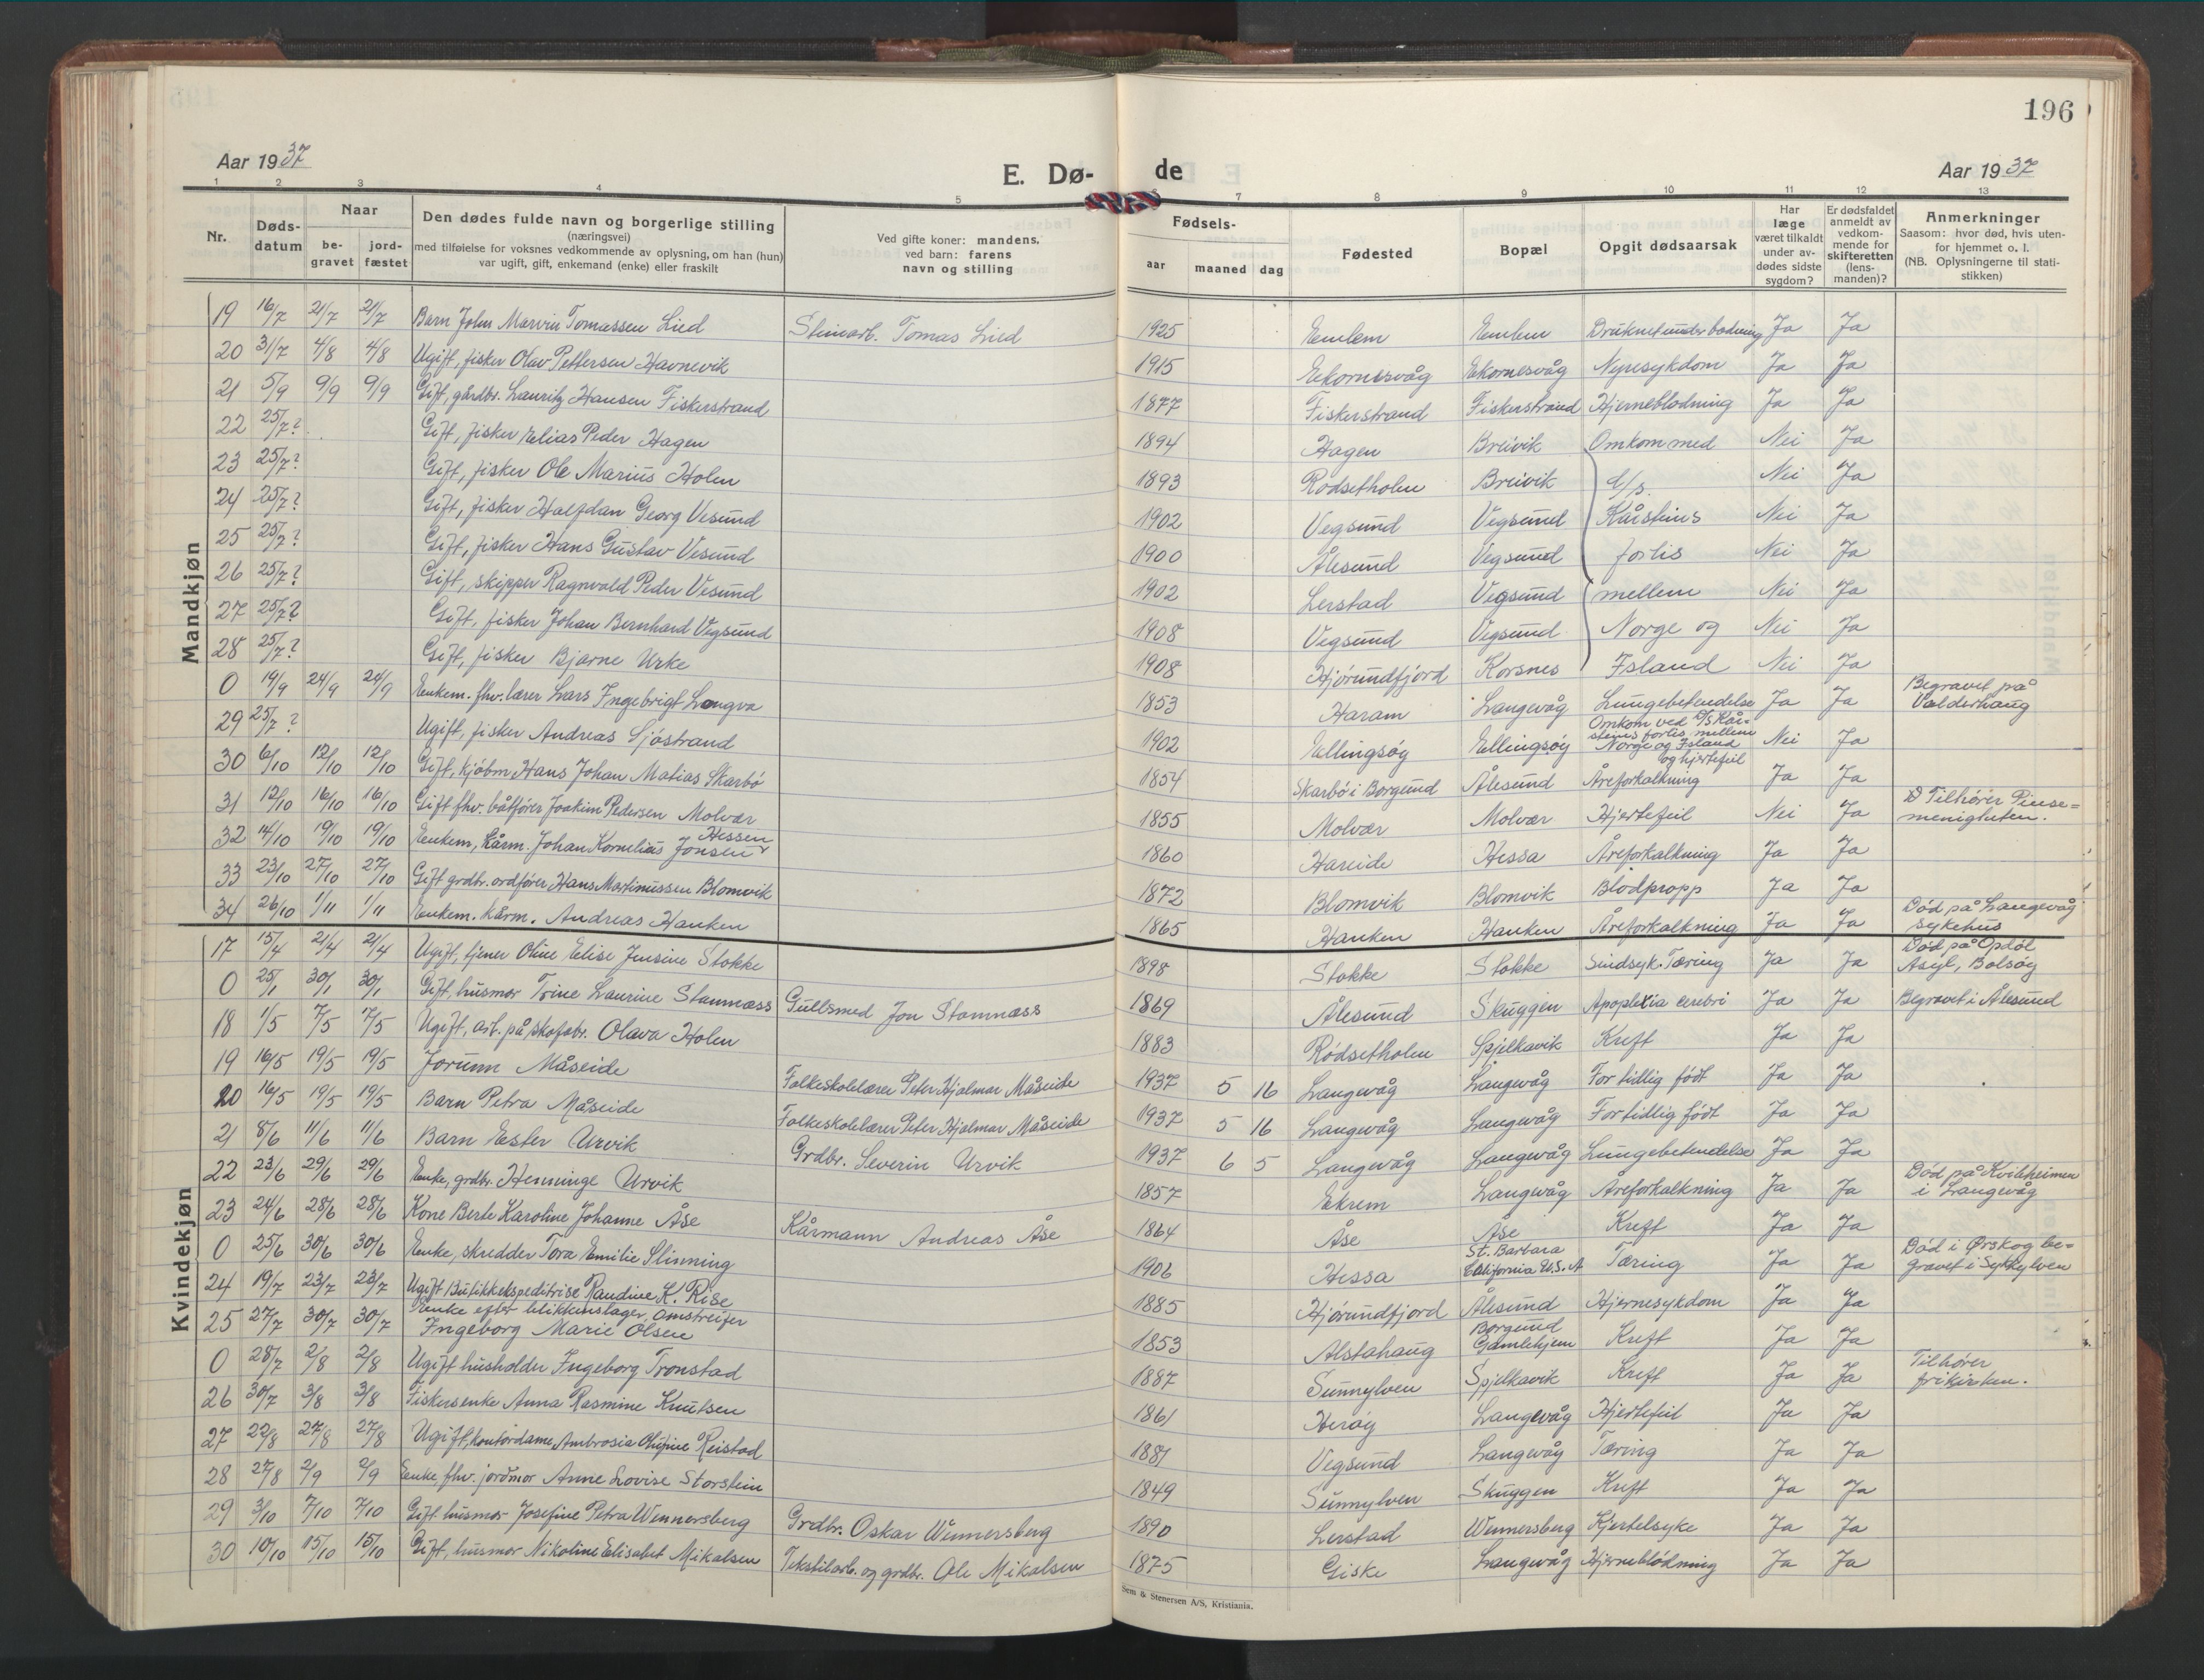 196
Aar 1937
E. Dø- de
Aar 1937
1 2 3 4 5 6 7 8 9 10 11 12 13
Nr.
Døds-
datum
Naar
be-
gravet
jord-
fæstet
Den dødes fulde navn og borgerlige stilling
(næringsvei)
med tilføielse for voksnes vedkommende av oplysning, om han (hun)
var ugift, gift, enkemand (enke) eller fraskilt
Ved gifte koner: mandens,
ved barn: farens
navn og stilling
Fødsels-
aar maaned dag
Fødested
Bopæl
Opgit dødsaarsak
Har
læge
været tilkaldt
under av-
dødes sidste
sygdom?
Er dødsfaldet
anmeldt av
vedkom-
mende for
skifteretten
(lens-
manden)?
Anmerkninger
Saasom: hvor død, hvis uten-
for hjemmet o. l.
(NB. Oplysningerne til stati-
stikken)
Mandkjøn
19 16/7 21/7 21/7 Barn John Marvin Tomassen Lied Steinarb. Tomas Lied 1925 Emlem Emlem Druknet under badning Ja Ja
20 31/7 4/8 4/8 Ugift, fisker Olav Pettersen Havnevik 1915 Ekornesvåg Ekornesvåg Nyresykdom Ja Ja
21 5/9 9/9 9/9 Gift, gårdbr. Lauritz Hansen Fiskerstrand 1877 Fiskerstrand Fiskerstrand Hjerneblødning Ja Ja
22 25/7? Gift, fisker Elias Peder Hagen 1894 Hagen Breivik Omkom med Nei Ja
23 25/7? Gift, fisker Ole Marius Holen 1893 Rødsetholen Breivik D/s. Nei Ja
24 25/7? Gift, fisker Halfdan Georg Vesund 1902 Vegsund Vegsund Kåisteins Nei Ja
25 25/7? Gift, fisker Hans Gustav Vesund 1900 Ålesund Vegsund forlis Nei Ja
26 25/7? Gift, skipper Ragnvald Peder Vesund 1902 Lerstad Vegsund mellem Nei Ja
27 25/7? Gift, fisker Johan Bernhard Vegsund 1908 Vegsund Vegsund Norge og Nei Ja
28 25/7? Gift, fisker Bjarne Urke 1908 Hjørundfjord Korsnes Island Nei Ja
0 19/9 24/9 24/9 Enkem. fhv. lærer Lars Ingebrigt Longva 1853 Haram Langevåg Lungebetendelse Ja Ja Begravet på
Valderhaug
29 25/7? Ugift, fisker Andreas Sjøstrand 1902 Ellingsøy Ellingsøy Omkom ved D/s Kåi=
steins forlis mellem
Norge og Island Nei Ja
30 6/10 12/10 12/10 Gift, kjøbm. Hans Johan Matias Skarbø 1854 Skarbø i Borgund Ålesund og hjertefeil
Åreforkalkning Ja Ja
31 12/10 16/10 16/10 Gift fhv. båtfører Joakim Pedersen Molvær 1855 Molvær Molvær Hjertefeil Nei Ja D Tilhører Pinse=
menigheten.
32 14/10 19/10 19/10 Enkem, Kårm. Johan Kornelius Jonsen Hessen 1860 Hareide Hessa Åreforkalkning Ja Ja
33 23/10 27/10 27/10 Gift grdbr. ordfører Hans Martinussen Blomvik 1872 Blomvik Blomvik Blodpropp Ja Ja
34 26/10 1/11 1/11 Enkem. kårm. Andreas Hanken 1865 Hanken Hanken Åreforkalkning Ja Ja Død på Langevåg
sykehus
Kvindekjøn
17 15/4 21/4 21/4 Ugift, tjener Oline Elise Jensine Stokke 1898 Stokke Stokke Sindsyk. Tæring Ja Ja Død på Opdøl
Asyl, Bolsøy
0 25/1 30/1 30/1 Gift, husmor Trine Laurine Stamnæss Gullsmed Jon Stamnæss 1869 Ålesund Skuggen Apoplexia cerebri Ja Ja Begravet i Ålesund
18 1/5 7/5 7/5 Ugift, arb. på skofabr. Olava Holen 1883 Rødsetholen Spjelkavik Kreft Ja Ja
19 16/5 19/5 19/5 Jorunn Måseide Folkeskolelærer Peter Hjalmar Måseide 1937 5 16 Langevåg Langevåg For tidlig født Ja Ja
20 16/5 19/5 19/5 Barn Petra Måseide Folkeskolelærer Peter Hjalmar Måseide 1937 5 16 Langevåg Langevåg For tidlig født Ja Ja
21 8/6 11/6 11/6 Barn Ester Urvik Grdbr. Severin Urvik 1937 6 5 Langevåg Langevåg Lungebetendelse Ja Ja
22 23/6 29/6 29/6 Enke, grdbr. Henninge Urvik 1857 Ekrem Langevåg Åreforkalkning Ja Ja Død på Kvilheimen
i Langevåg
23 24/6 28/6 28/6 Kone Berte Karoline Johanne Åse Kårmann Andreas Åse 1864 Åse Åse Kreft Ja Ja
0 25/6 30/6 30/6 Enke, skredder Tora Emilie Slinning 1906 Hessa St. Barbara
California U.S.A Tæring Ja Ja Død i Ørskog be=
gravet i Sykkylven
24 19/7 23/7 23/7 Ugift Butikkekspeditrise Randine K. Rise 1885 Hjørundfjord Ålesund Hjernesykdom Ja Ja
25 27/7 30/7 30/7 Enke efter blikkenslager, Omstreifer
Ingeborg Marie Olsen 1853 Alstahaug Borgund
Gamlehjem Kreft Ja Ja
0 28/7 2/8 2/8 Ugift husholder Ingeborg Tronstad 1887 Sunnylven Spjelkavik Kreft Ja Ja Tilhører
frikirken.
26 30/7 3/8 3/8 Fiskersenke Anna Rasmine Knutsen 1861 Herøy Langevåg Hjertefeil Ja Ja
27 22/8 27/8 27/8 Ugift, kontordame, Ambrosia Olufine Reistad 1881 Vegsund Langevåg Tæring Ja Ja
28 27/8 2/9 2/9 Enke fhv. jordmor Anne Lovise Storstein 1849 Sunnylven Skuggen Kreft Ja Ja
29 3/10 7/10 7/10 Gift husmor Josefine Petra Wennersberg Grdbr. Oskar Wennersberg 1890 Lerstad Wennersberg Kjertelsyke Ja Ja
30 10/10 15/10 15/10 Gift, husmor Nikoline Elisabet Mikalsen Tekstilarb. og grdbr. Ole Mikalsen 1875 Giske Langevåg Hjerneblødning Ja Ja
Sem & Stenersen A/S, Kristiania.